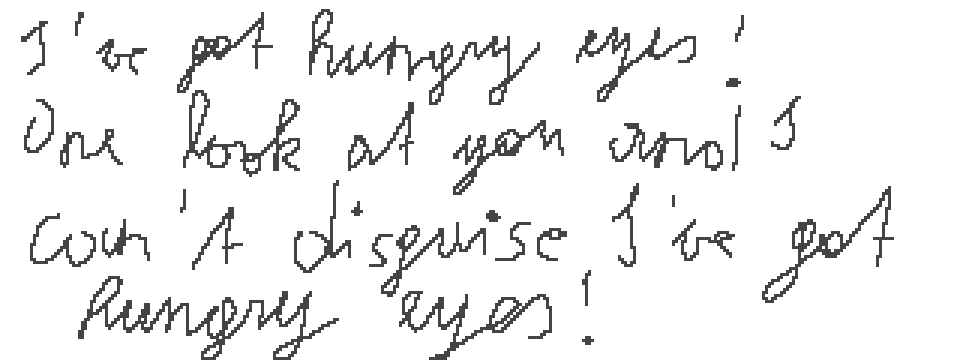 I've got hungry eyes!
One look at you and I
can't disguise I've got
hungry eyes!